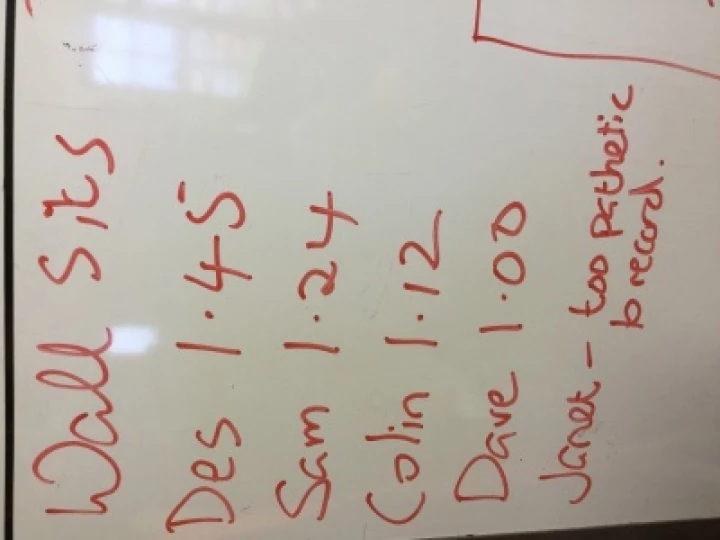 Wall Sits
Des 1.45
Sam 1.24
Colin 1.12
Dave 1.00
Janet - too pathetic
to record.